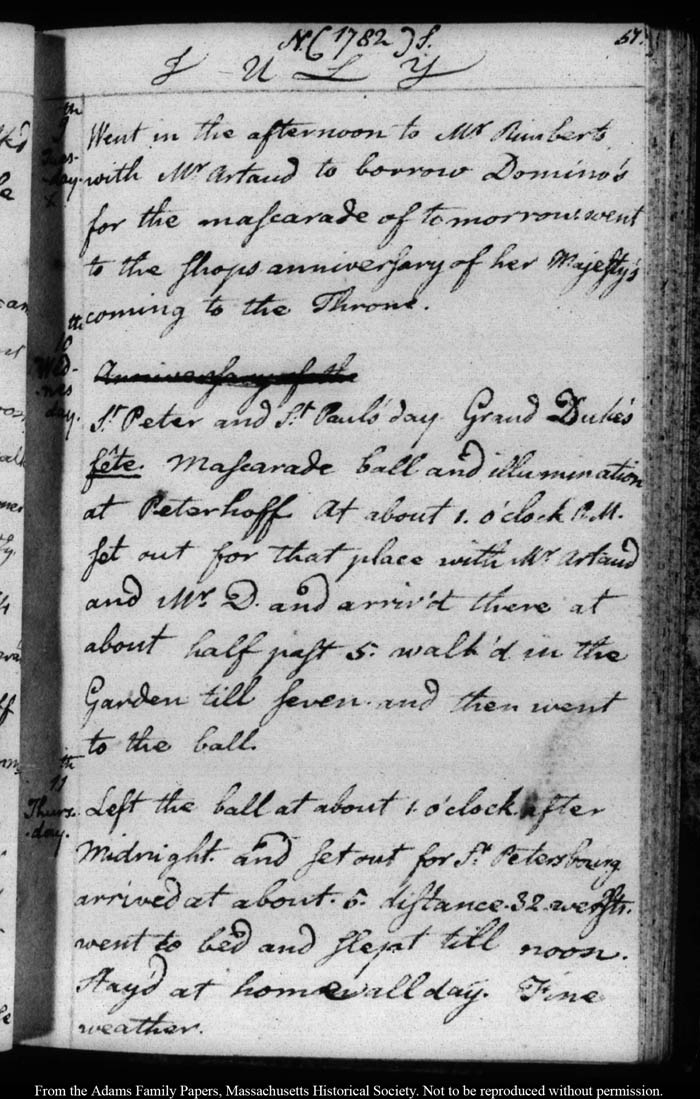 N.( 1782 )S.
57.
JULY
th
9
Tues-
-day.
x
Went in the afternoon to Mr Rimberts
with Mr Artaud to borrow Domino's
for the mascarade of tomorrow. went
to the shops anniversary of her Majesty's
coming to the Throne.
th
10
Wed-
-nes
day.
Anniversary of the
St. Peter and St. Paul's day. Grand Duke's
fête. Mascarade ball and illumination
at Peterhoff. At about 1. o'clock P.M.
set out for that place with Mr Artaud
and Mr. D. and arriv'd there at
about half past 5. walk'd in the
Garden till seven. and then went
to the ball.
th
11
Thurs-
-day.
Left the ball at about 1. o'clock. after
Midnight. and set out for St. Petersbourg
arrived at about. 5. distance. 32. wersts.
went to bed and slept till noon.
stay'd at home all day. Fine
weather.
From the Adams Family Papers, Massachusetts Historical Society. Not to be reproduced without permission.